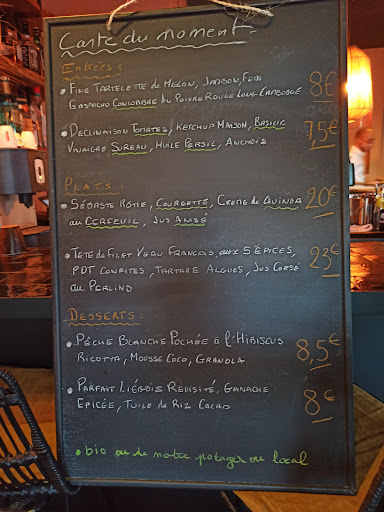 Carte du moment
Entrées :
• Fine Tartelette de Melon, Jambon, Feta
Gaspacho Concombre au Poivre Rouge Long Cambodge 8€
• Déclinaison Tomates, Ketchup Maison, Basilic
Vinaigre Sureau, Huile Persil, Anchois 7,5€
Plats :
• Sébaste Rôtie, Courgette, Crème de Quinoa
au Cerfeuil, Jus Amsé 20€
• Tête de Filet Veau François aux 5 épices,
PDT Confites, Tartare Algues, Jus Corsé
au Perlino 23€
Desserts :
• Pêche Blanche Pochée à l'Hibiscus
Ricotta, Mousse Coco, Granola 8,5€
• Parfait Liégois Revisité, Ganache
Épicée, Tuile de Riz Cacao 8€
• bio ou de notre potager ou local